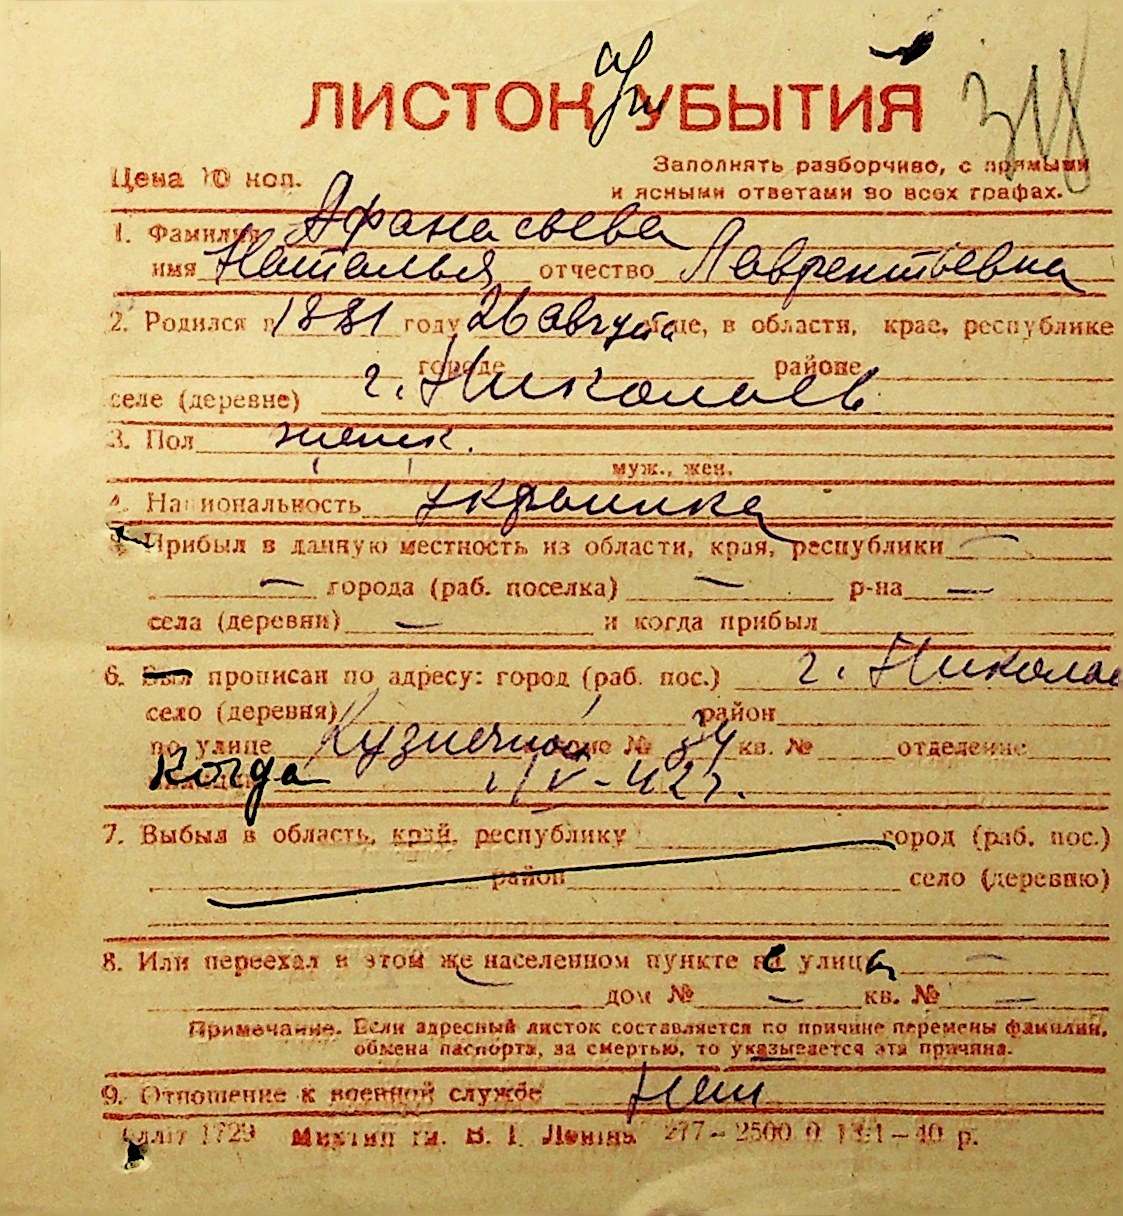 ЛИСТОК УБЫТИЯ
Цена 10 коп.
Заполнять разборчиво, с прямыми
и ясными ответами во всех графах.
1. Фамилия Афанасьева
имя Наталья отчество Лаврентьевна
2. Родился в 1881 году 26 августа в области, крае, республике
городе районе
селе (деревне) г. Николаев
3. Пол женск.
муж., жен.
4. Национальность украинка
Прибыл в данную местность из области, края, республики —
— города (раб. поселка) — р-на —
села (деревни) — и когда прибыл
6. Был прописан по адресу: город (раб. пос.) г. Николае
село (деревня) район
по улице Кузнечной № 34 кв. № отделение
Когда IV-42 г.
7. Выбыл в область, край, республику город (раб. пос.)
район село (деревню)
8. Или переехал в этом же населенном пункте с улицы —
дом № — кв. № —
Примечание. Если адресный листок составляется по причине перемены фамилии,
обмена паспорта, за смертью, то указывается эта причина.
9. Отношение к военной службе Нет
1729 им. В. І. Леніна 277—2500 0 1—40 р.